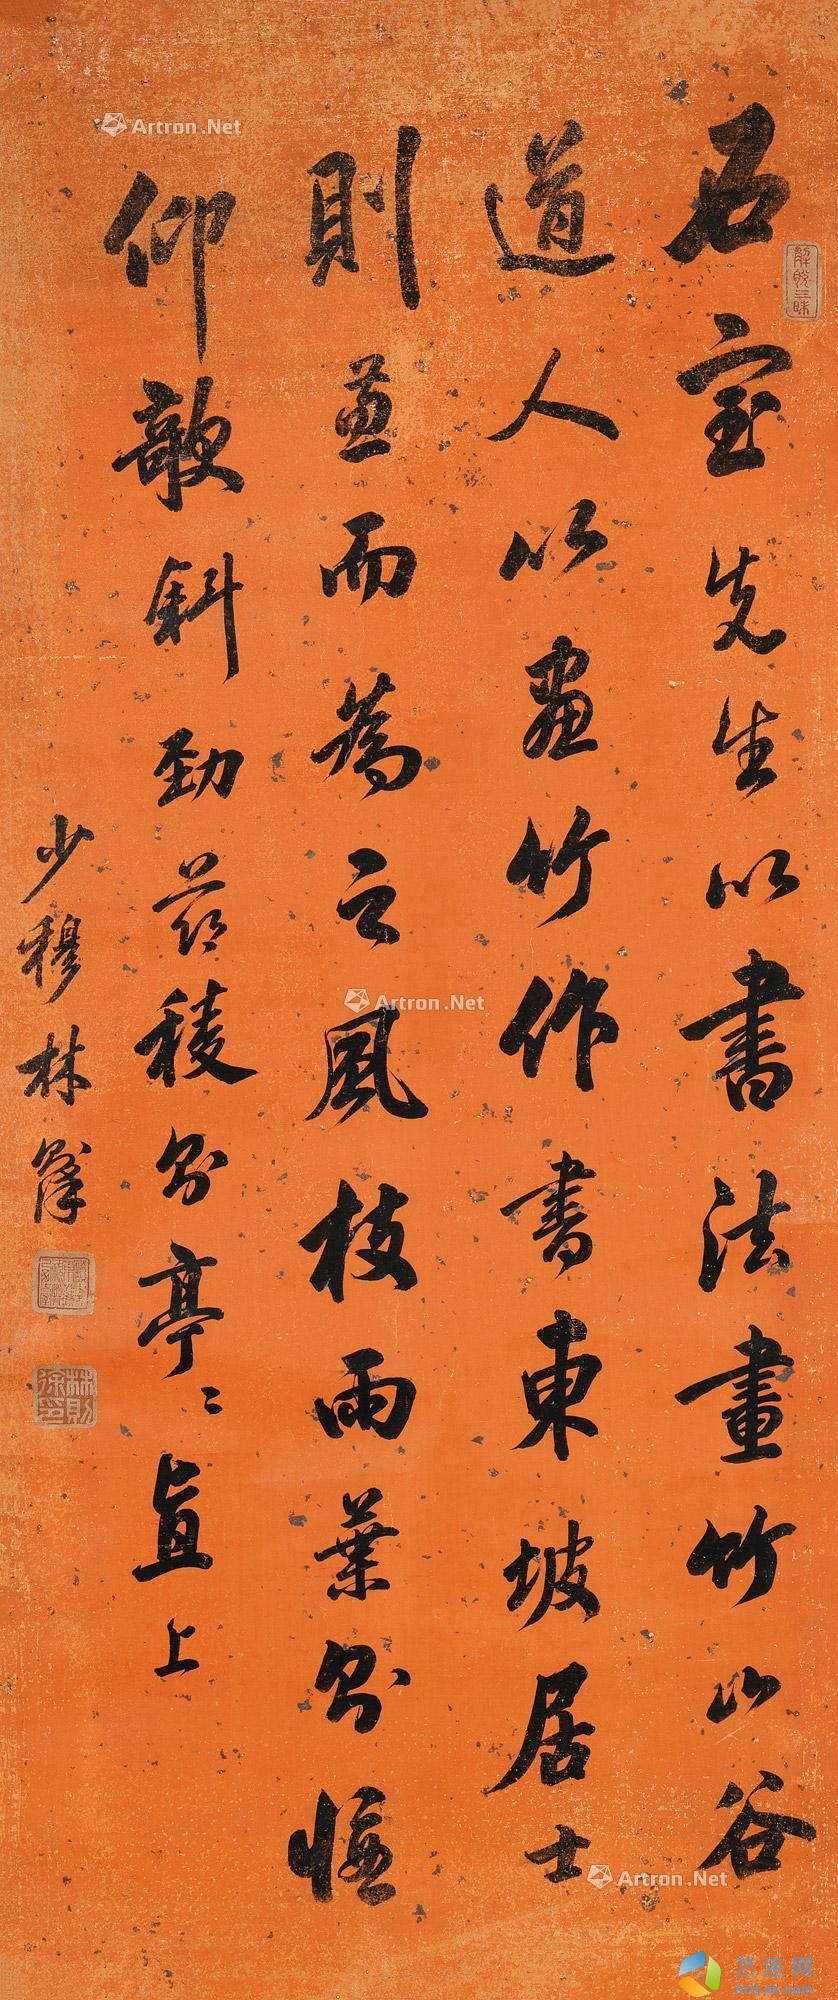 石室先生以書法畫竹山谷
道人以畫竹作書東坡居士
則兼而為之風枝雨葉則偃
仰欹斜勁節稜則亭〻直上
少穆林則徐
解脫三昧
林則徐印
Artron.Net
Artron.Net
Artron.Net
艺连网